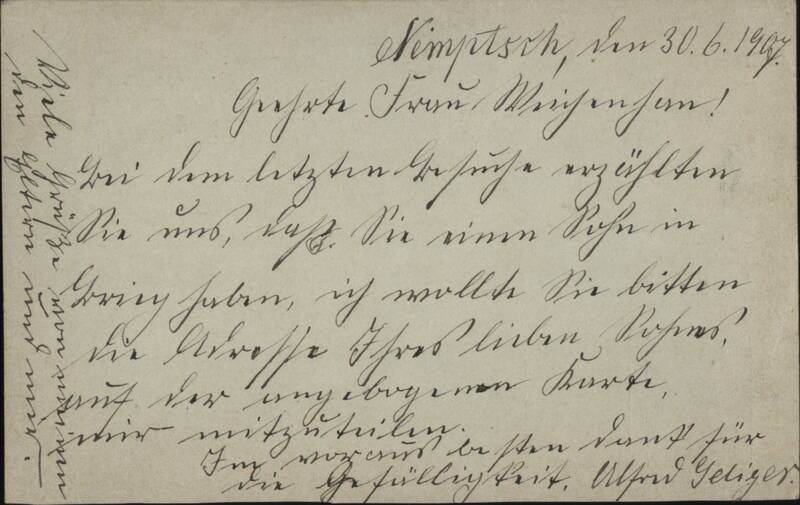 Nimptsch, den 30.6.1907.
Geehrte Frau Weichenhan!
Bei dem letzten Besuche erzählten
Sie uns, daß Sie einen Sohn in
Brieg haben, ich wollte Sie bitten
die Adresse Ihres lieben Sohnes,
auf der angebogenen Karte,
mir mitzuteilen.
Im voraus besten Dank für
die Gefälligkeit. Alfred
Viele Grüße von meinen
den Eltern und mir.